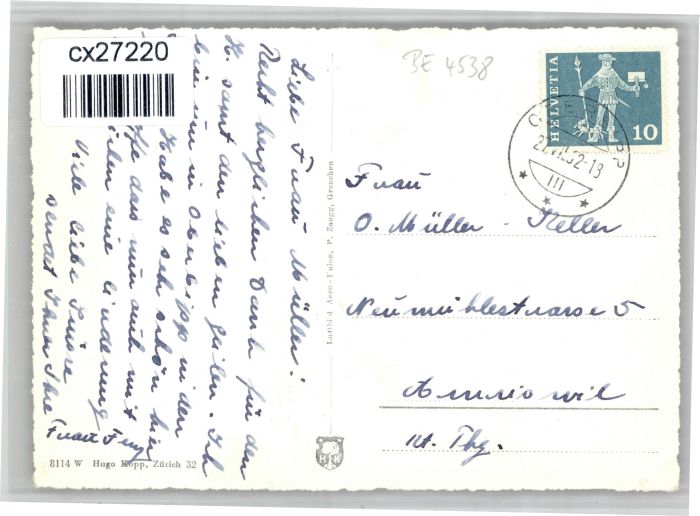 cx27220
BE 4538
HELVETIA
10
Liebe Frau Müller!
Recht herzlichen Dank für den
K. samt den lieben Zeilen. Ich
bin nun in Oberbipp in den
Habe es sehr schön hier
das nun auch mit
eine Linderung
Viele liebe Grüsse
sendet Ihnen Ihre
Frau
Frau
O. Müller - Keller
Neumühlestrasse 5
Amriswil
Kt. Thg.
Luftbild Aero-Union, P. Zaugg, Grenchen
8114 W Hugo Kopp, Zürich 32